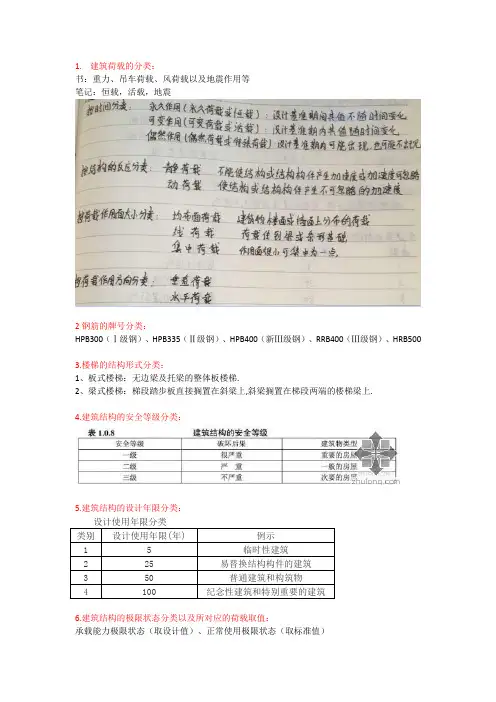 1. 建筑荷载的分类：
书：重力、吊车荷载、风荷载以及地震作用等
笔记：恒载，活载，地震
按时间分类： 永久作用(永久荷载或恒载)：设计基准期间其值不随时间变化
可变作用(可变荷载或活载)：设计基准期内其值随时间变化
偶然作用(偶然荷载或特殊荷载)：设计基准期内可能出现，也可能不出现
按结构的反应分类： 静荷载 不能使结构或结构构件产生加速度或加速度可忽略
动荷载 使结构或结构构件产生不可忽略的加速度
按荷载作用面大小分类： 均布面荷载 建筑的楼面或墙面上分布的荷载
线荷载 荷载传到梁或条形基础
集中荷载 作用面很小可集中为一点
按荷载作用方向分类： 垂直荷载
水平荷载
2钢筋的牌号分类：
HPB300（Ⅰ级钢）、HPB335（Ⅱ级钢）、HPB400（新Ⅲ级钢）、RRB400（Ⅲ级钢）、HRB500
3.楼梯的结构形式分类：
1、板式楼梯：无边梁及托梁的整体板楼梯.
2、梁式楼梯：梯段踏步板直接搁置在斜梁上,斜梁搁置在梯段两端的楼梯梁上.
4.建筑结构的安全等级分类：
表 1.0.8 建筑结构的安全等级
安全等级 破坏后果 建筑物类型
一级 很严重 重要的房屋
二级 严 重 一般的房屋
三级 不严重 次要的房屋
zhulong.com
5.建筑结构的设计年限分类：
设计使用年限分类
类别 设计使用年限(年) 例示
1 5 临时性建筑
2 25 易替换结构构件的建筑
3 50 普通建筑和构筑物
4 100 纪念性建筑和特别重要的建筑
6.建筑结构的极限状态分类以及所对应的荷载取值：
承载能力极限状态（取设计值）、正常使用极限状态（取标准值）